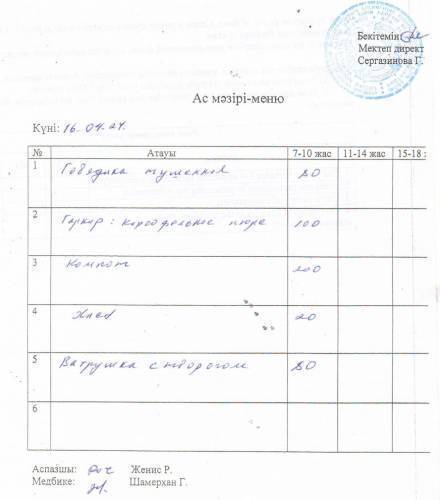 Бекітемін
Мектеп директ
Сергазинова Г.
Ас мәзірі-меню
Күні: 16.04.24.
№ Атауы 7-10 жас 11-14 жас 15-18 ж
1 Говядина тушенная 80
2 Гарнир: картофельное пюре 100
3 Компот 200
4 Хлеб 20
5 Ватрушка с творогом 80
6
Аспазшы: Женис Р.
Медбике: Шамерхан Г.